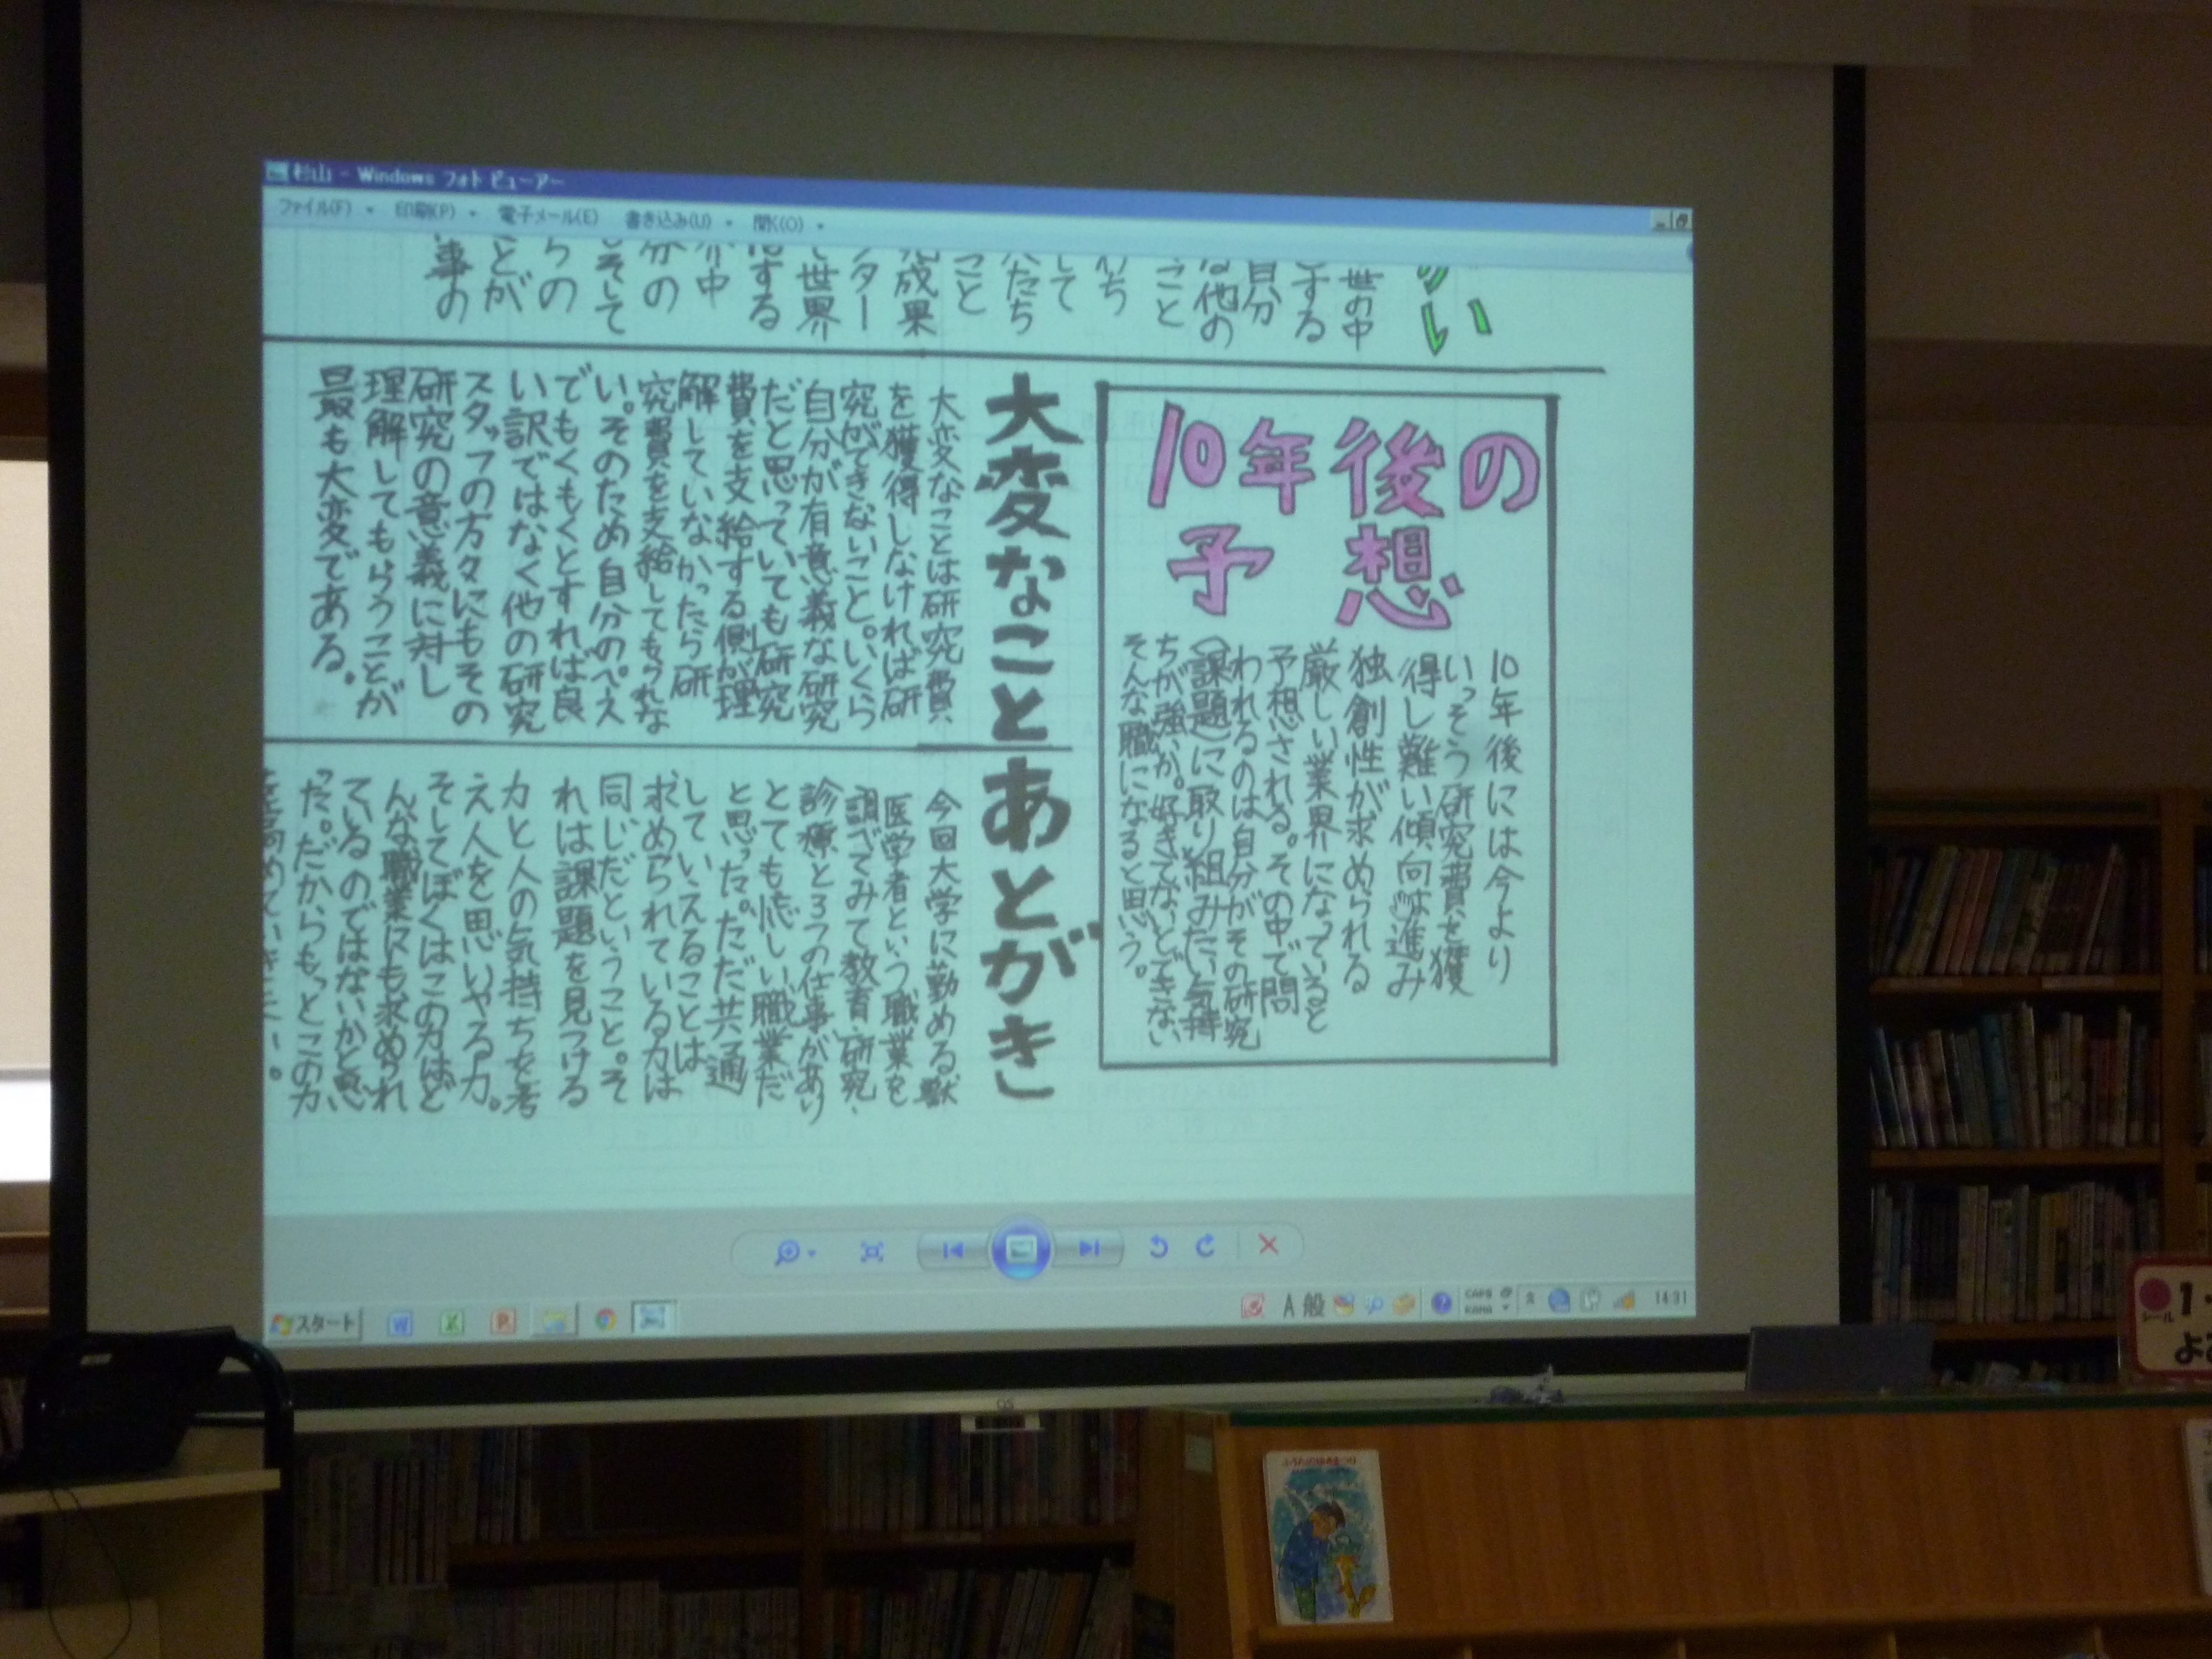 杉山 - Windows フォト ビューアー
ファイル(F) 印刷(P) 電子メール(E) 書き込み(U) 開く(O)
い
世の中
する
自分
な他の
こと
して
たち
こと
成果
ター
世界
する
中
分の
そして
らの
とが
事の
10年後の
予想
10年後には今より
いっそう研究費を獲
得し難い傾向は進み
独創性が求められる
厳しい業界になっていると
予想される。その中で問
われるのは自分がその研究
(課題)に取り組みたい気持
ちが強いか。好きでないとできない
そんな職になると思う。
大変なこと
大変なことは研究費
を獲得しなければ研
究ができないこと。いくら
自分が有意義な研究
だと思っていても研究
費を支給する側が理
解していなかったら研
究費を支給してもらえな
い。そのため自分のペース
でもくもくとすれば良
い訳ではなく他の研究
スタッフの方々にもその
研究の意義に対し
理解してもらうことが
最も大変である。
あとがき
今回大学に勤める獣
医学者という職業を
調べてみて教育、研究、
診療と3つの仕事があり
とても忙しい職業だ
と思った。ただ共通
していえることは
求められている力は
同じだということ。そ
れは課題を見つける
力と人の気持ちを考
え人を思いやる力。
そしてぼくはこの力はど
んな職業にも求められ
ているのではないかと思
った。だからもっとこの力
スタート
A 般
CAPS
KANA
14:31
GS
シール
1-